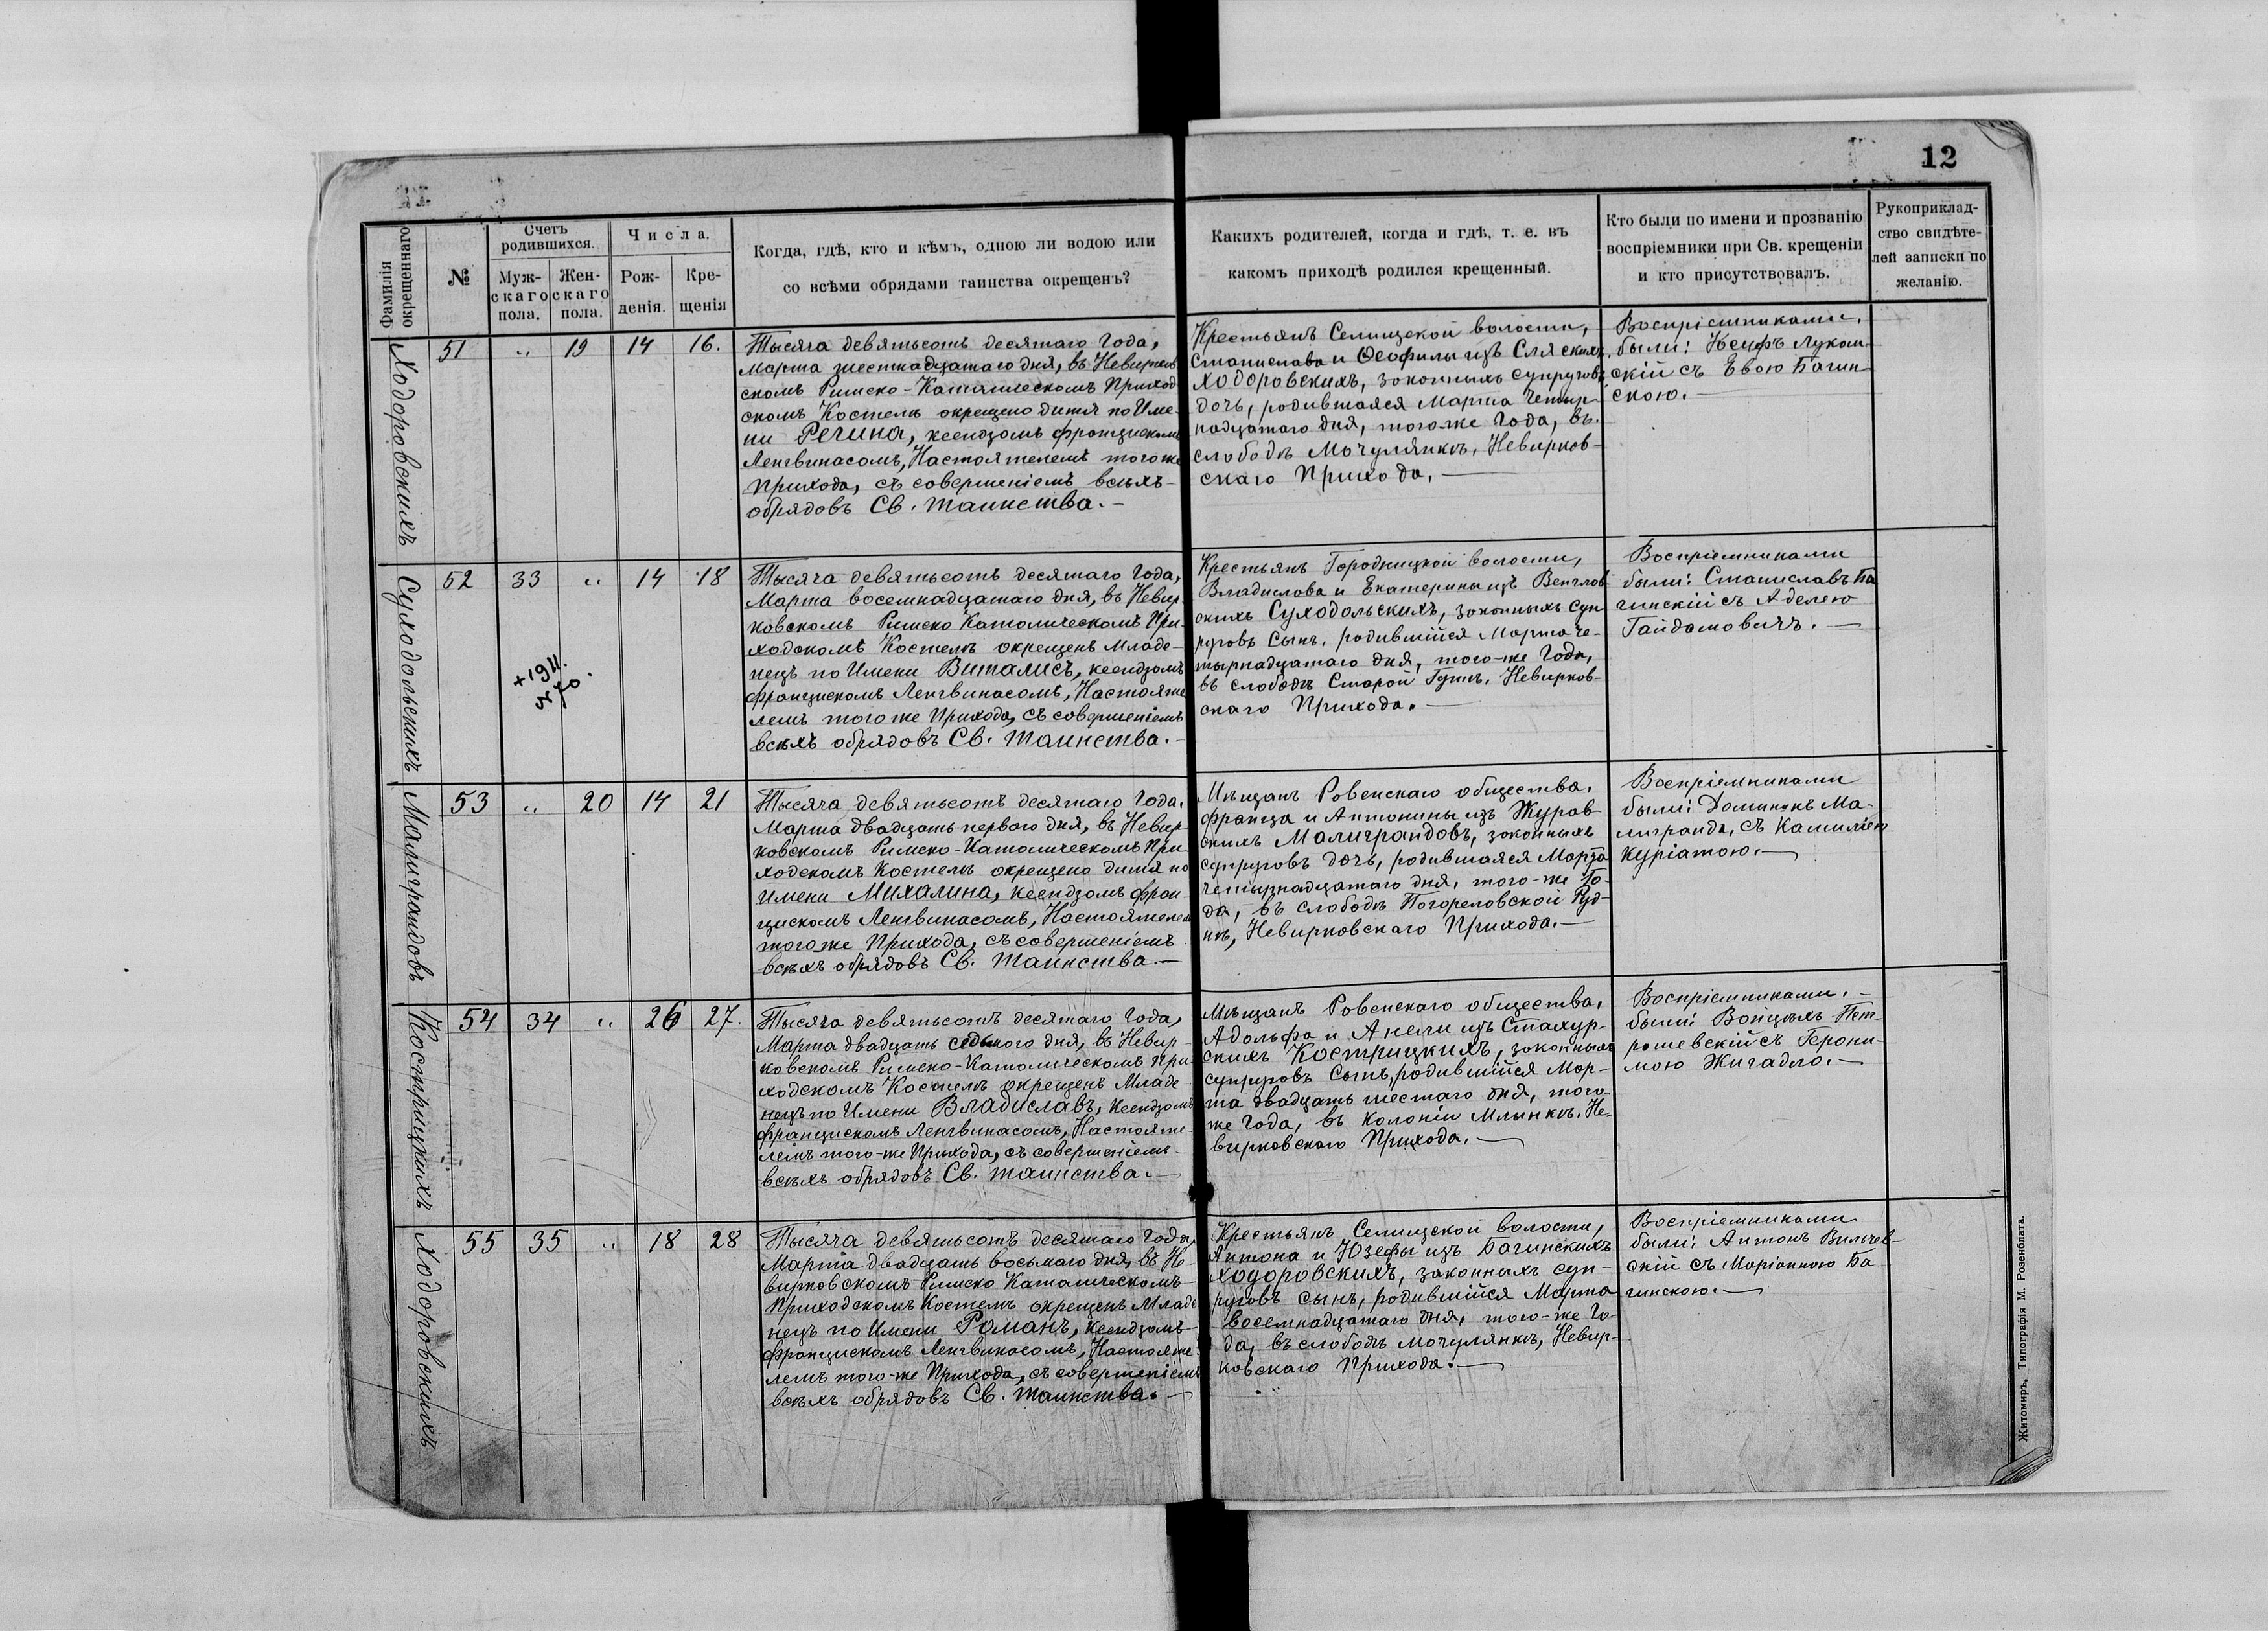 12
Фамилія окрещеннаго
№
Счетъ родившихся.
Муж-
скаго
пола.
Жен-
скаго
пола.
Числа.
Рож-
денія.
Кре-
щенія
Когда, гдѣ, кто и кѣмъ, одною ли водою или
со всѣми обрядами таинства окрещенъ?
Какихъ родителей, когда и гдѣ, т. е. въ
какомъ приходѣ родился крещенный.
Кто были по имени и прозванію
воспріемники при Св. крещеніи
и кто присутствовалъ.
Рукоприклад-
ство свидѣте-
лей записки по
желанію.
Ходоровскихъ
51 „ 19 14 16.
Тысяча девятьсотъ десятаго Года,
Марта шестнадцатаго дня, въ Невирков
скомъ Римско-Католическомъ Приход
скомъ Костелѣ окрещено дитя по Име-
ни Регина, ксендзомъ Францискомъ
Ленгвинасомъ, Настоятелемъ того же
Прихода, съ совершеніемъ всѣхъ
обрядовъ Св. Таинства.—
Крестьянъ Селищской волости,
Станислава и Ѳеофилы изъ
Ходоровскихъ, законныхъ супруговъ
дочь, родившаяся Марта четыр-
надцатаго дня, того-же Года, въ
слободѣ Мочулянкѣ, Невирков-
скаго Прихода.—
Воспріемниками
были: Іосифъ Луком-
скій съ Евою Багин
скою.—
Суходольскихъ
52 33 „ 14 18
+1911.
№ 70.
Тысяча девятьсотъ десятаго Года,
Марта восемнадцатаго дня, въ Невир-
ковскомъ Римско Католическомъ При-
ходскомъ Костелѣ окрещенъ Младе-
нецъ по Имени Виталисъ, ксендзомъ
Францискомъ Ленгвинасомъ, Настояте
лемъ того же Прихода, съ совершеніемъ
всѣхъ обрядовъ Св. Таинства.—
Крестьянъ Городницкой волости,
Владислава и Екатерины изъ Венглов-
скихъ Суходольскихъ, законныхъ суп
руговъ Сынъ, родившійся Марта че-
тырнадцатаго дня, того-же Года,
въ слободѣ Старой Гутѣ, Невирков-
скаго Прихода.—
Воспріемниками
были: Станиславъ Ба
гинскій съ Аделею
Гайдамовичъ.—
Малиграндовъ
53 „ 20 14 21
Тысяча девятьсотъ десятаго Года,
Марта двадцать перваго дня, въ Невир-
ковскомъ Римско-Католическомъ При
ходскомъ Костелѣ окрещено дитя по
Имени Михалина, ксендзомъ Фран-
цискомъ Ленгвинасомъ, Настоятелемъ
того же Прихода, съ совершеніемъ
всѣхъ обрядовъ Св. Таинства.—
Мѣщанъ Ровенскаго общества,
Франца и Антонины изъ Журав-
скихъ Малиграндовъ, законныхъ
супруговъ дочь, родившаяся Марта
четырнадцатаго дня, того-же Го-
да, въ слободѣ Погореловской Руд-
нѣ, Невирковскаго Прихода.—
Воспріемниками
были: Доминикъ Ма-
лиграндъ, съ Камиліею
Куріатою.—
Кострицкихъ
54 34 „ 26 27.
Тысяча девятьсотъ десятаго Года,
Марта двадцать седьмого дня, въ Невир-
ковскомъ Римско-Католическомъ При-
ходскомъ Костелѣ окрещенъ Младе-
нецъ по Имени Владиславъ, ксендзомъ
Францискомъ Ленгвинасомъ, Настояте-
лемъ того-же Прихода, съ совершеніемъ
всѣхъ обрядовъ Св. Таинства.—
Мѣщанъ Ровенскаго общества,
Адольфа и Анели изъ Стахур-
скихъ Кострицкихъ, законныхъ
супруговъ Сынъ, родившійся Мар-
та двадцать шестаго дня, того-
же Года, въ колоніи Млынкѣ, Не-
вирковскаго Прихода.—
Воспріемниками
были: Войцѣхъ Пет-
рашевскій съ Герони-
мою Жигадло.—
Ходоровскихъ
55 35 „ 18 28
Тысяча девятьсотъ десятаго Года,
Марта двадцать восьмаго дня, въ Не-
вирковскомъ Римско Католическомъ
Приходскомъ Костелѣ окрещенъ Младе
нецъ по Имени Романъ, ксендзомъ
Францискомъ Ленгвинасомъ, Настояте-
лемъ того-же Прихода, съ совершеніемъ
всѣхъ обрядовъ Св. Таинства.—
Крестьянъ Селищской волости,
Антона и Юзефы изъ Багинскихъ
Ходоровскихъ, законныхъ суп-
руговъ сынъ, родившійся Марта
восемнадцатаго дня, того-же Го-
да, въ слободѣ Мочулянкѣ, Невир-
ковскаго Прихода.—
Воспріемниками
были: Антонъ Вильчев-
скій съ Маріанною Ба
гинскою.—
Житомиръ, Типографія М. Розенблата.